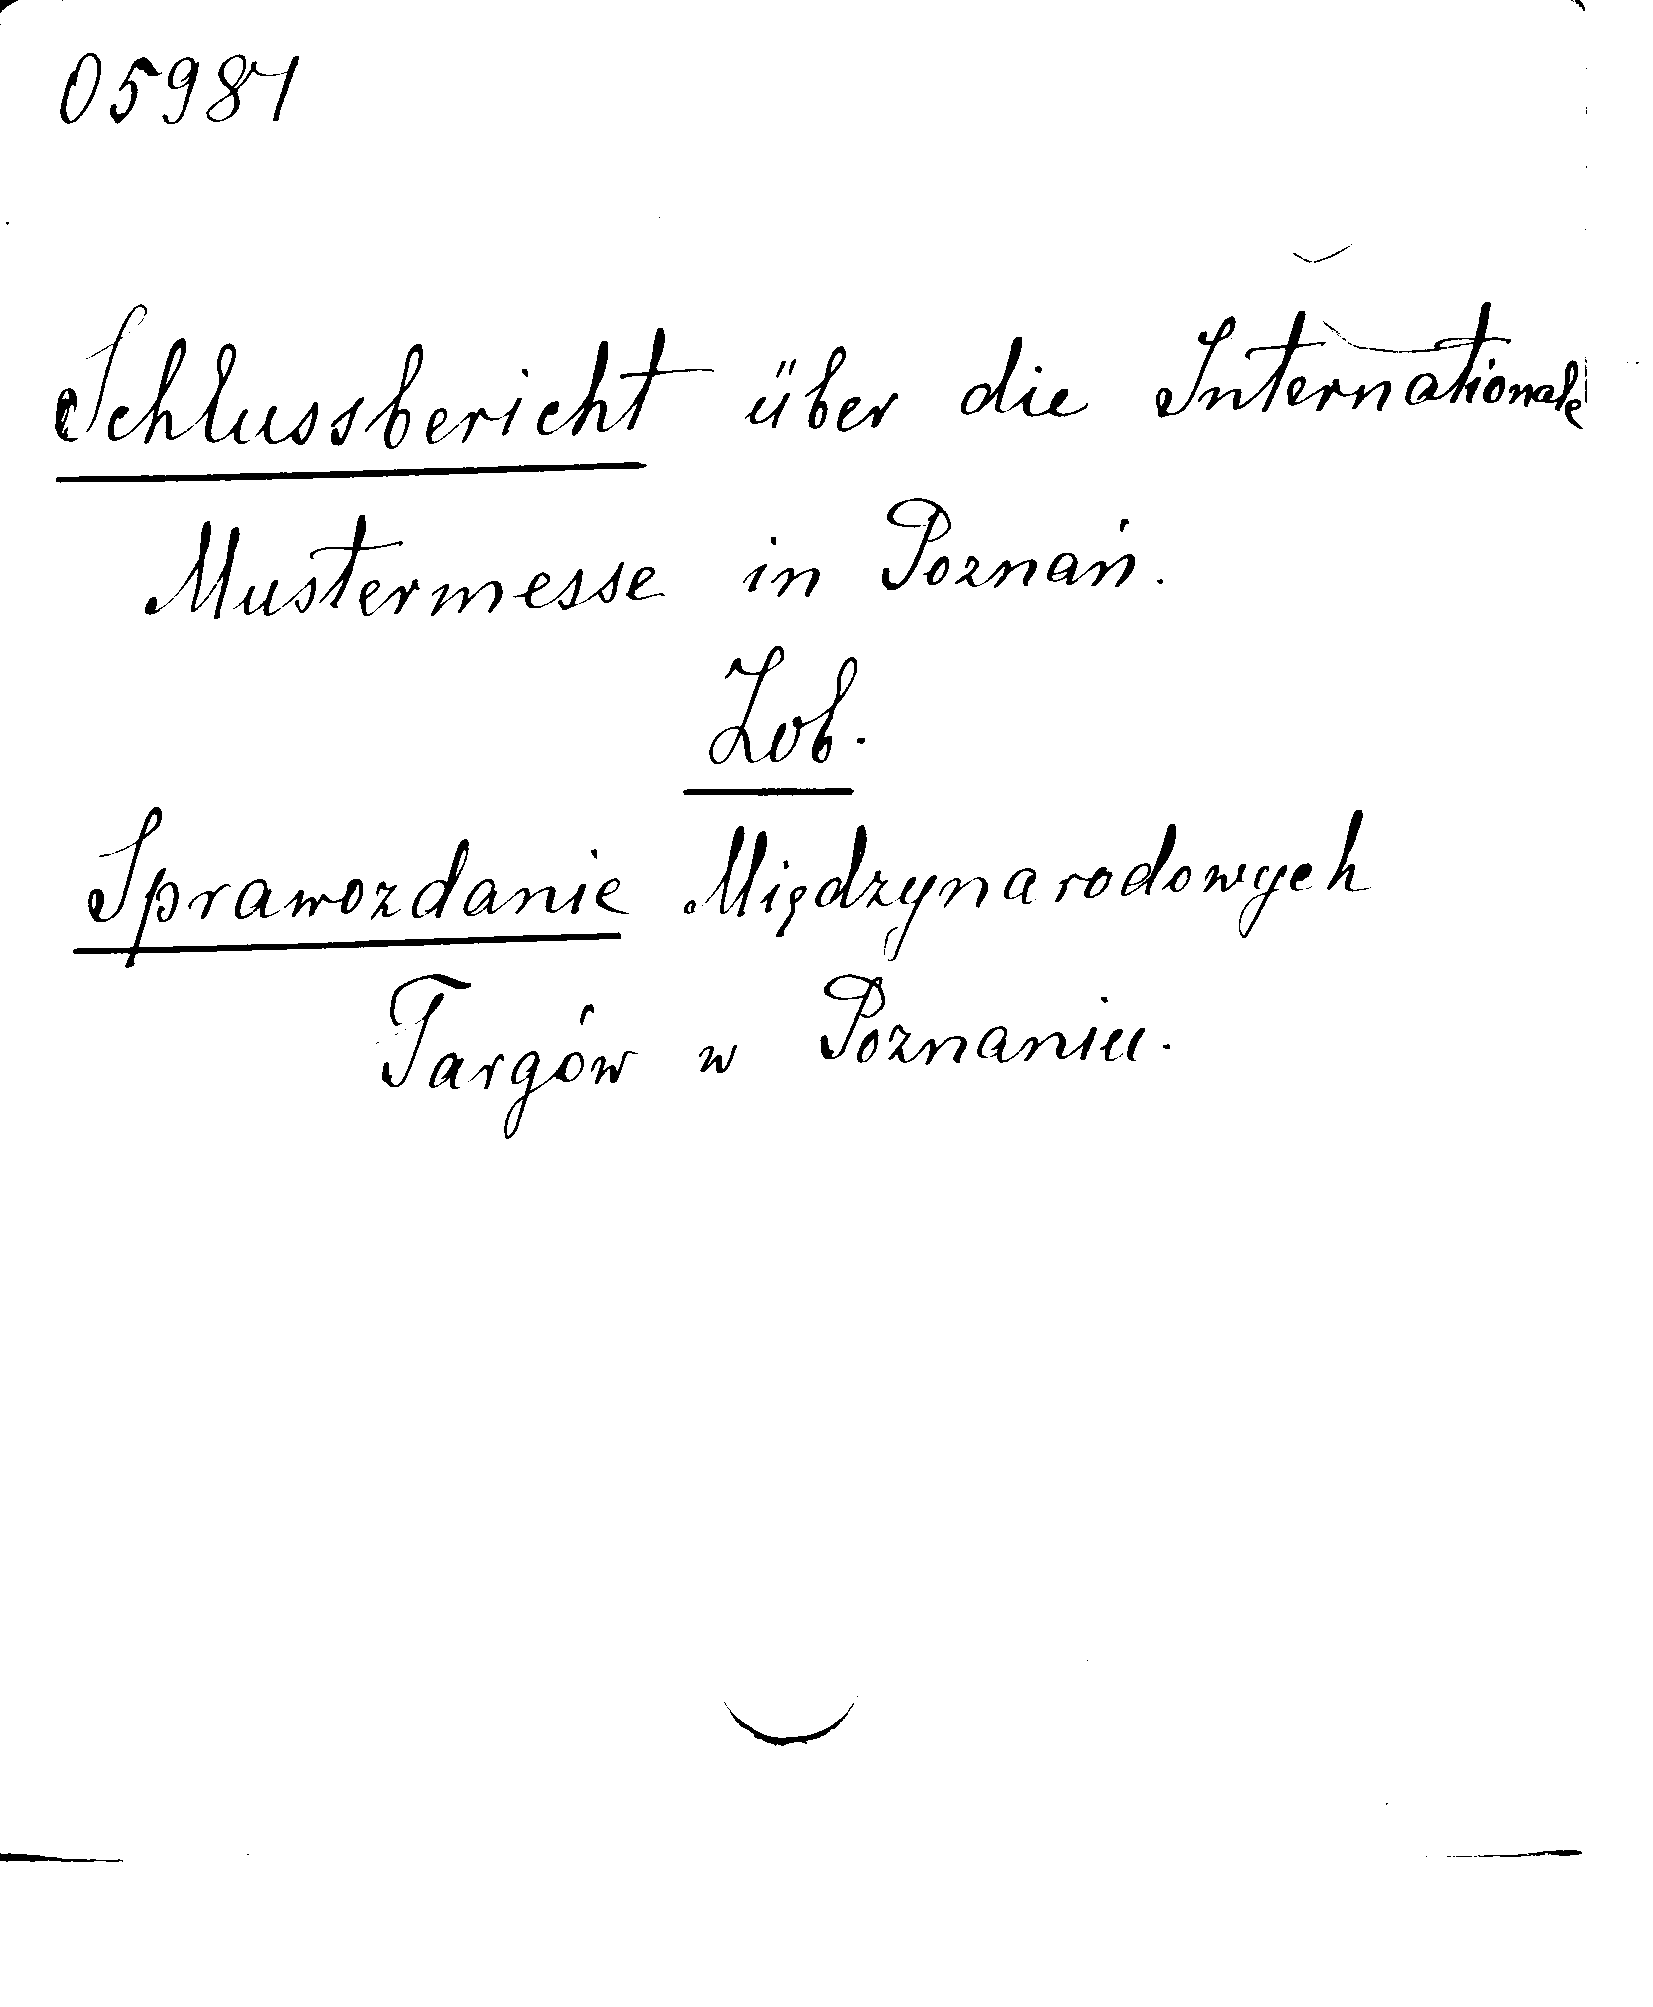 05981
Schlussbericht über die Internationale
Mustermesse in Poznań.
Zob.
Sprawozdanie Międzynarodowych
Targów w Poznaniu.